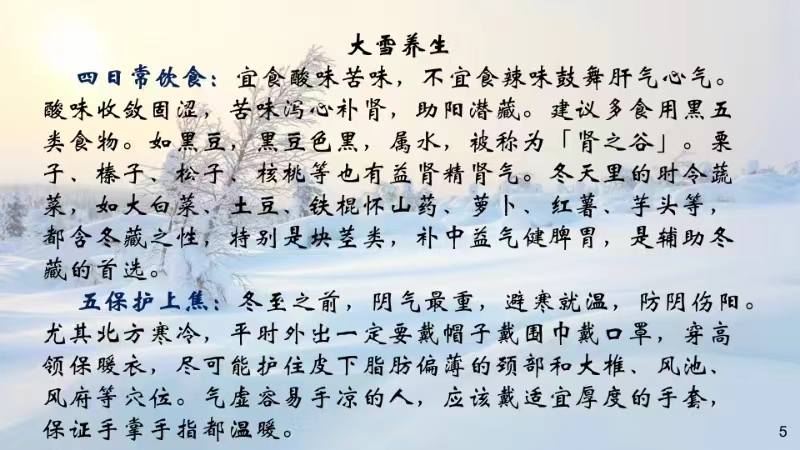 大雪养生
四日常饮食：宜食酸味苦味，不宜食辣味鼓舞肝气心气。
酸味收敛固涩，苦味泻心补肾，助阳潜藏。建议多食用黑五
类食物。如黑豆，黑豆色黑，属水，被称为「肾之谷」。栗
子、榛子、松子、核桃等也有益肾精肾气。冬天里的时令蔬
菜，如大白菜、土豆、铁棍怀山药、萝卜、红薯、芋头等，
都含冬藏之性，特别是块茎类，补中益气健脾胃，是辅助冬
藏的首选。
五保护上焦：冬至之前，阴气最重，避寒就温，防阴伤阳。
尤其北方寒冷，平时外出一定要戴帽子戴围巾戴口罩，穿高
领保暖衣，尽可能护住皮下脂肪偏薄的颈部和大椎、风池、
风府等穴位。气虚容易手凉的人，应该戴适宜厚度的手套，
保证手掌手指都温暖。
5